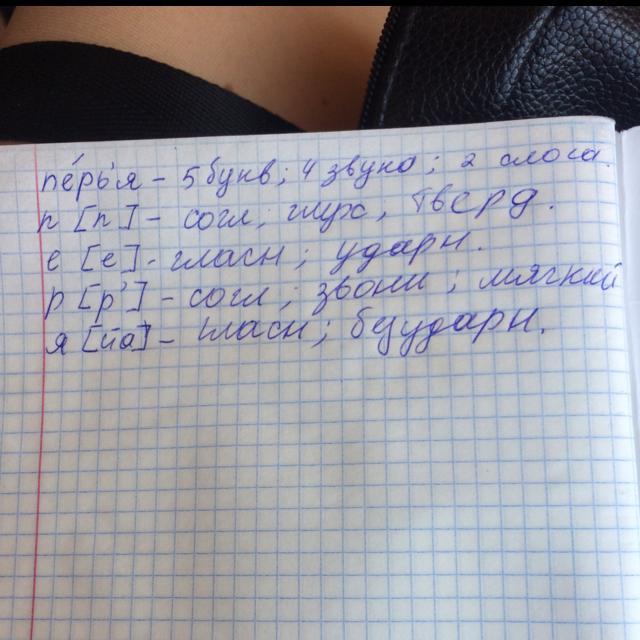 пе́рья – 5 букв; 4 звука; 2 слога.
п [п] – согл; глух; тверд.
е [е] – гласн; ударн.
р [р'] – согл; звонк; мягкий
я [йа] – гласн; безударн.